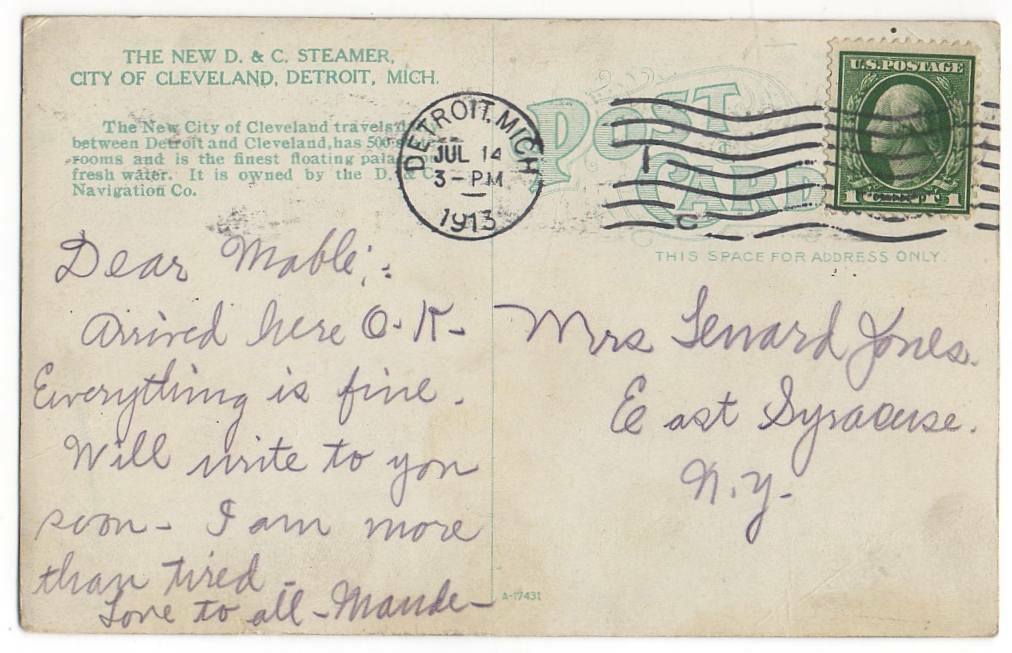 THE NEW D. & C. STEAMER,
CITY OF CLEVELAND, DETROIT, MICH.
The New City of Cleveland travels
between Detroit and Cleveland, has 500
rooms and is the finest floating
fresh water. It is owned by the D. & C.
Navigation Co.
DETROIT, MICH.
JUL 14
3-PM
1913
POST
CARD
U.S. POSTAGE
1 1
THIS SPACE FOR ADDRESS ONLY.
Dear Mable;:
Arrived here O-K-
Everything is fine.
Will write to you
soon- I am more
than tired-
Love to all-Maude-
Mrs Lenard Jones.
East Syracuse.
N.Y.-
A-17431